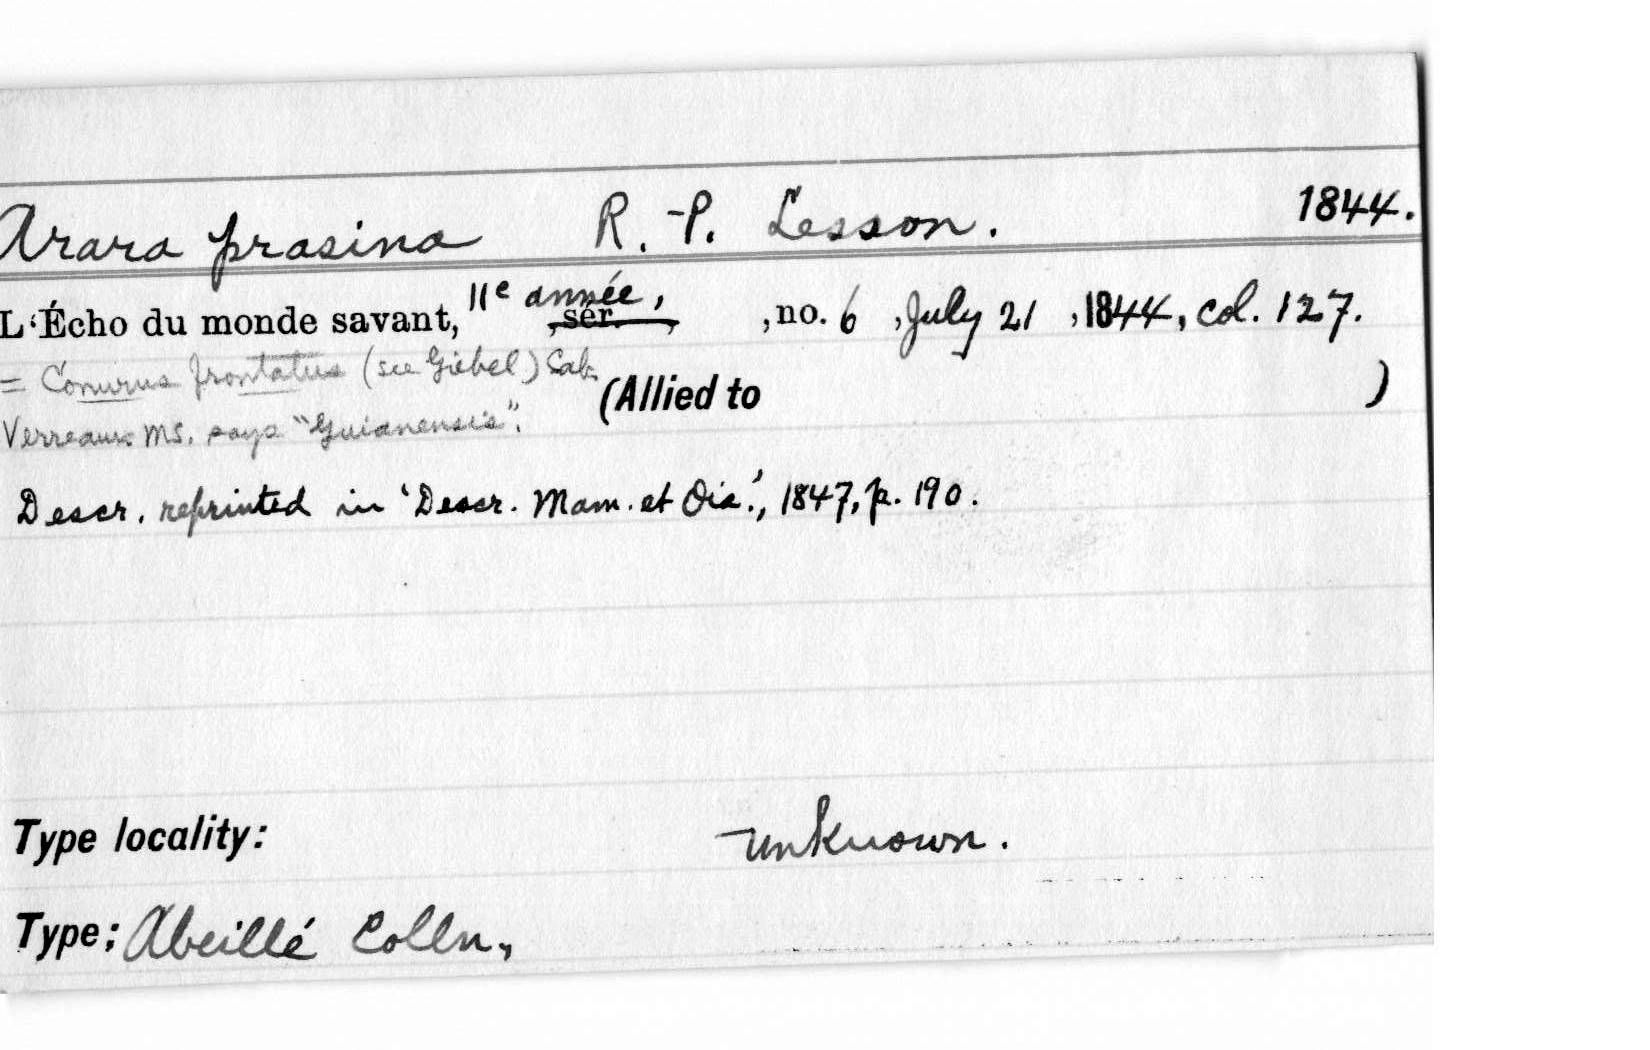 Arara prasina R.-P. Lesson. 1844.
L'Écho du monde savant, 11e année, , sér. , , no. 6 , July 21 , 1844, col. 127.
= Conurus frontatus (see Giebel) Cab.
(Allied to )
Verreaux MS. says "Guianensis".
Descr. reprinted in 'Descr. Mam. et Ois.', 1847, p. 190.
Type locality: unknown.
Type; Abeillé Colln,